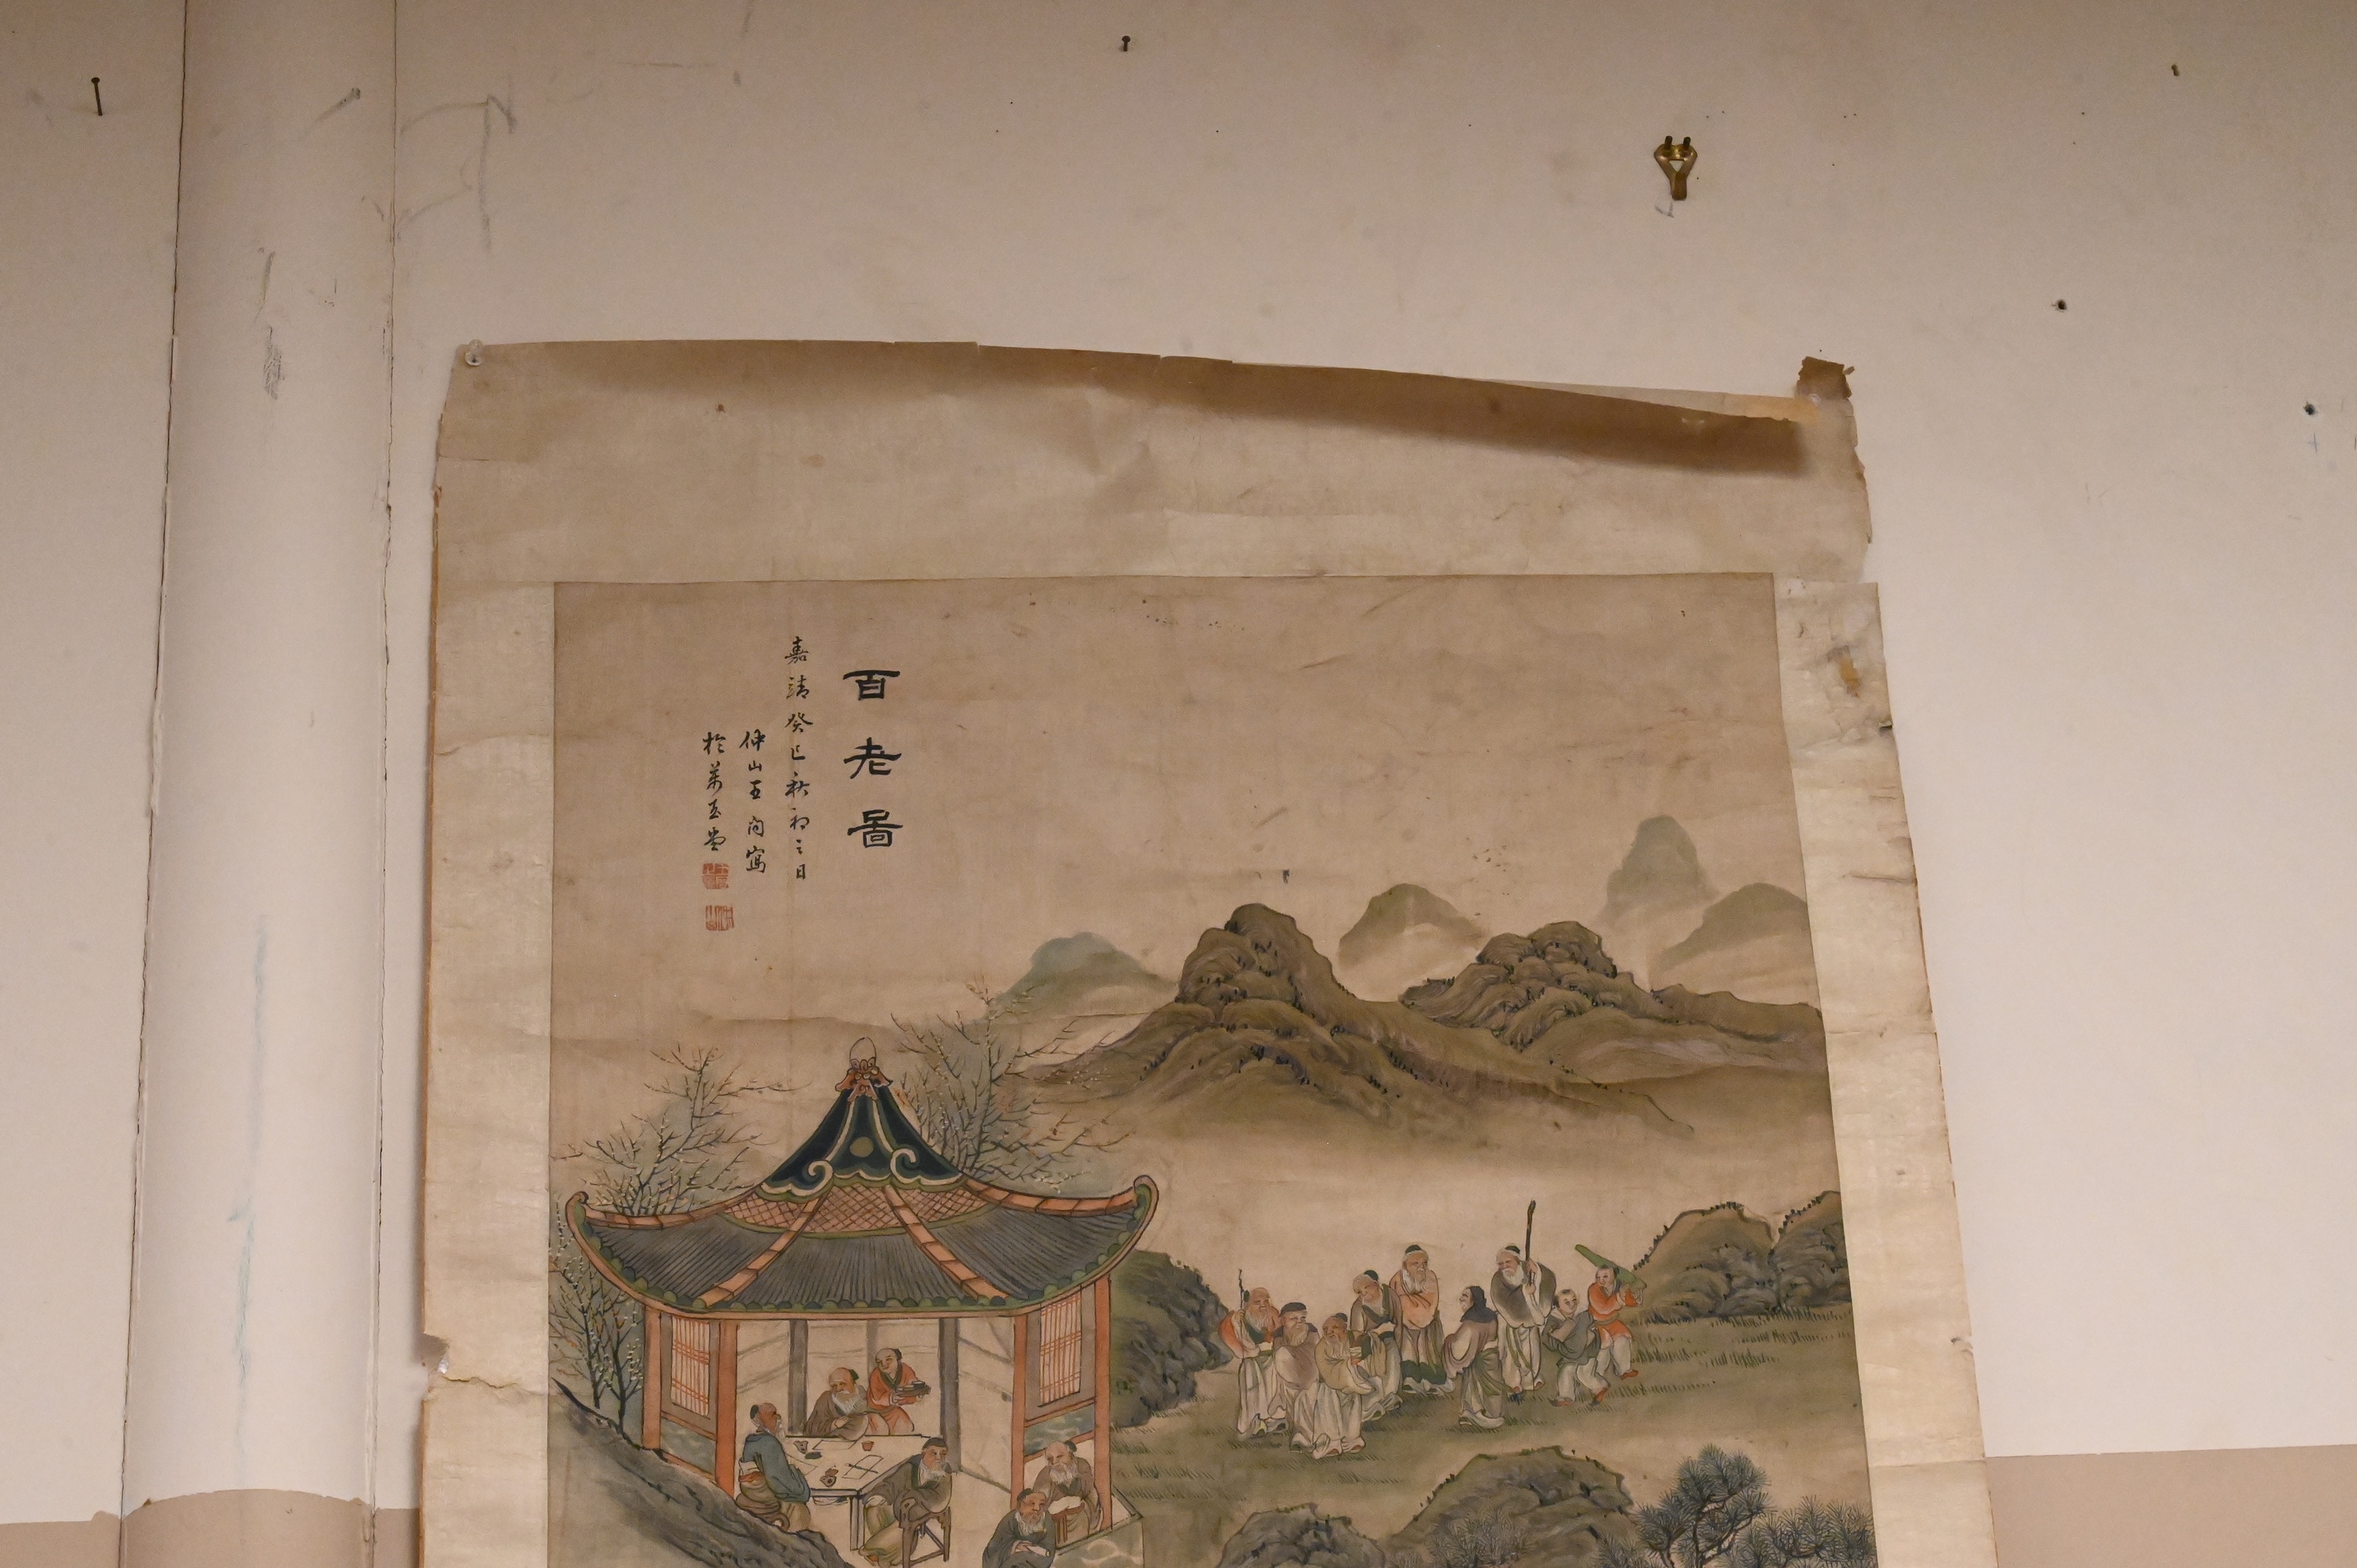 百老圖
嘉靖癸巳秋初三日
仲山王問寫
於萬玉堂